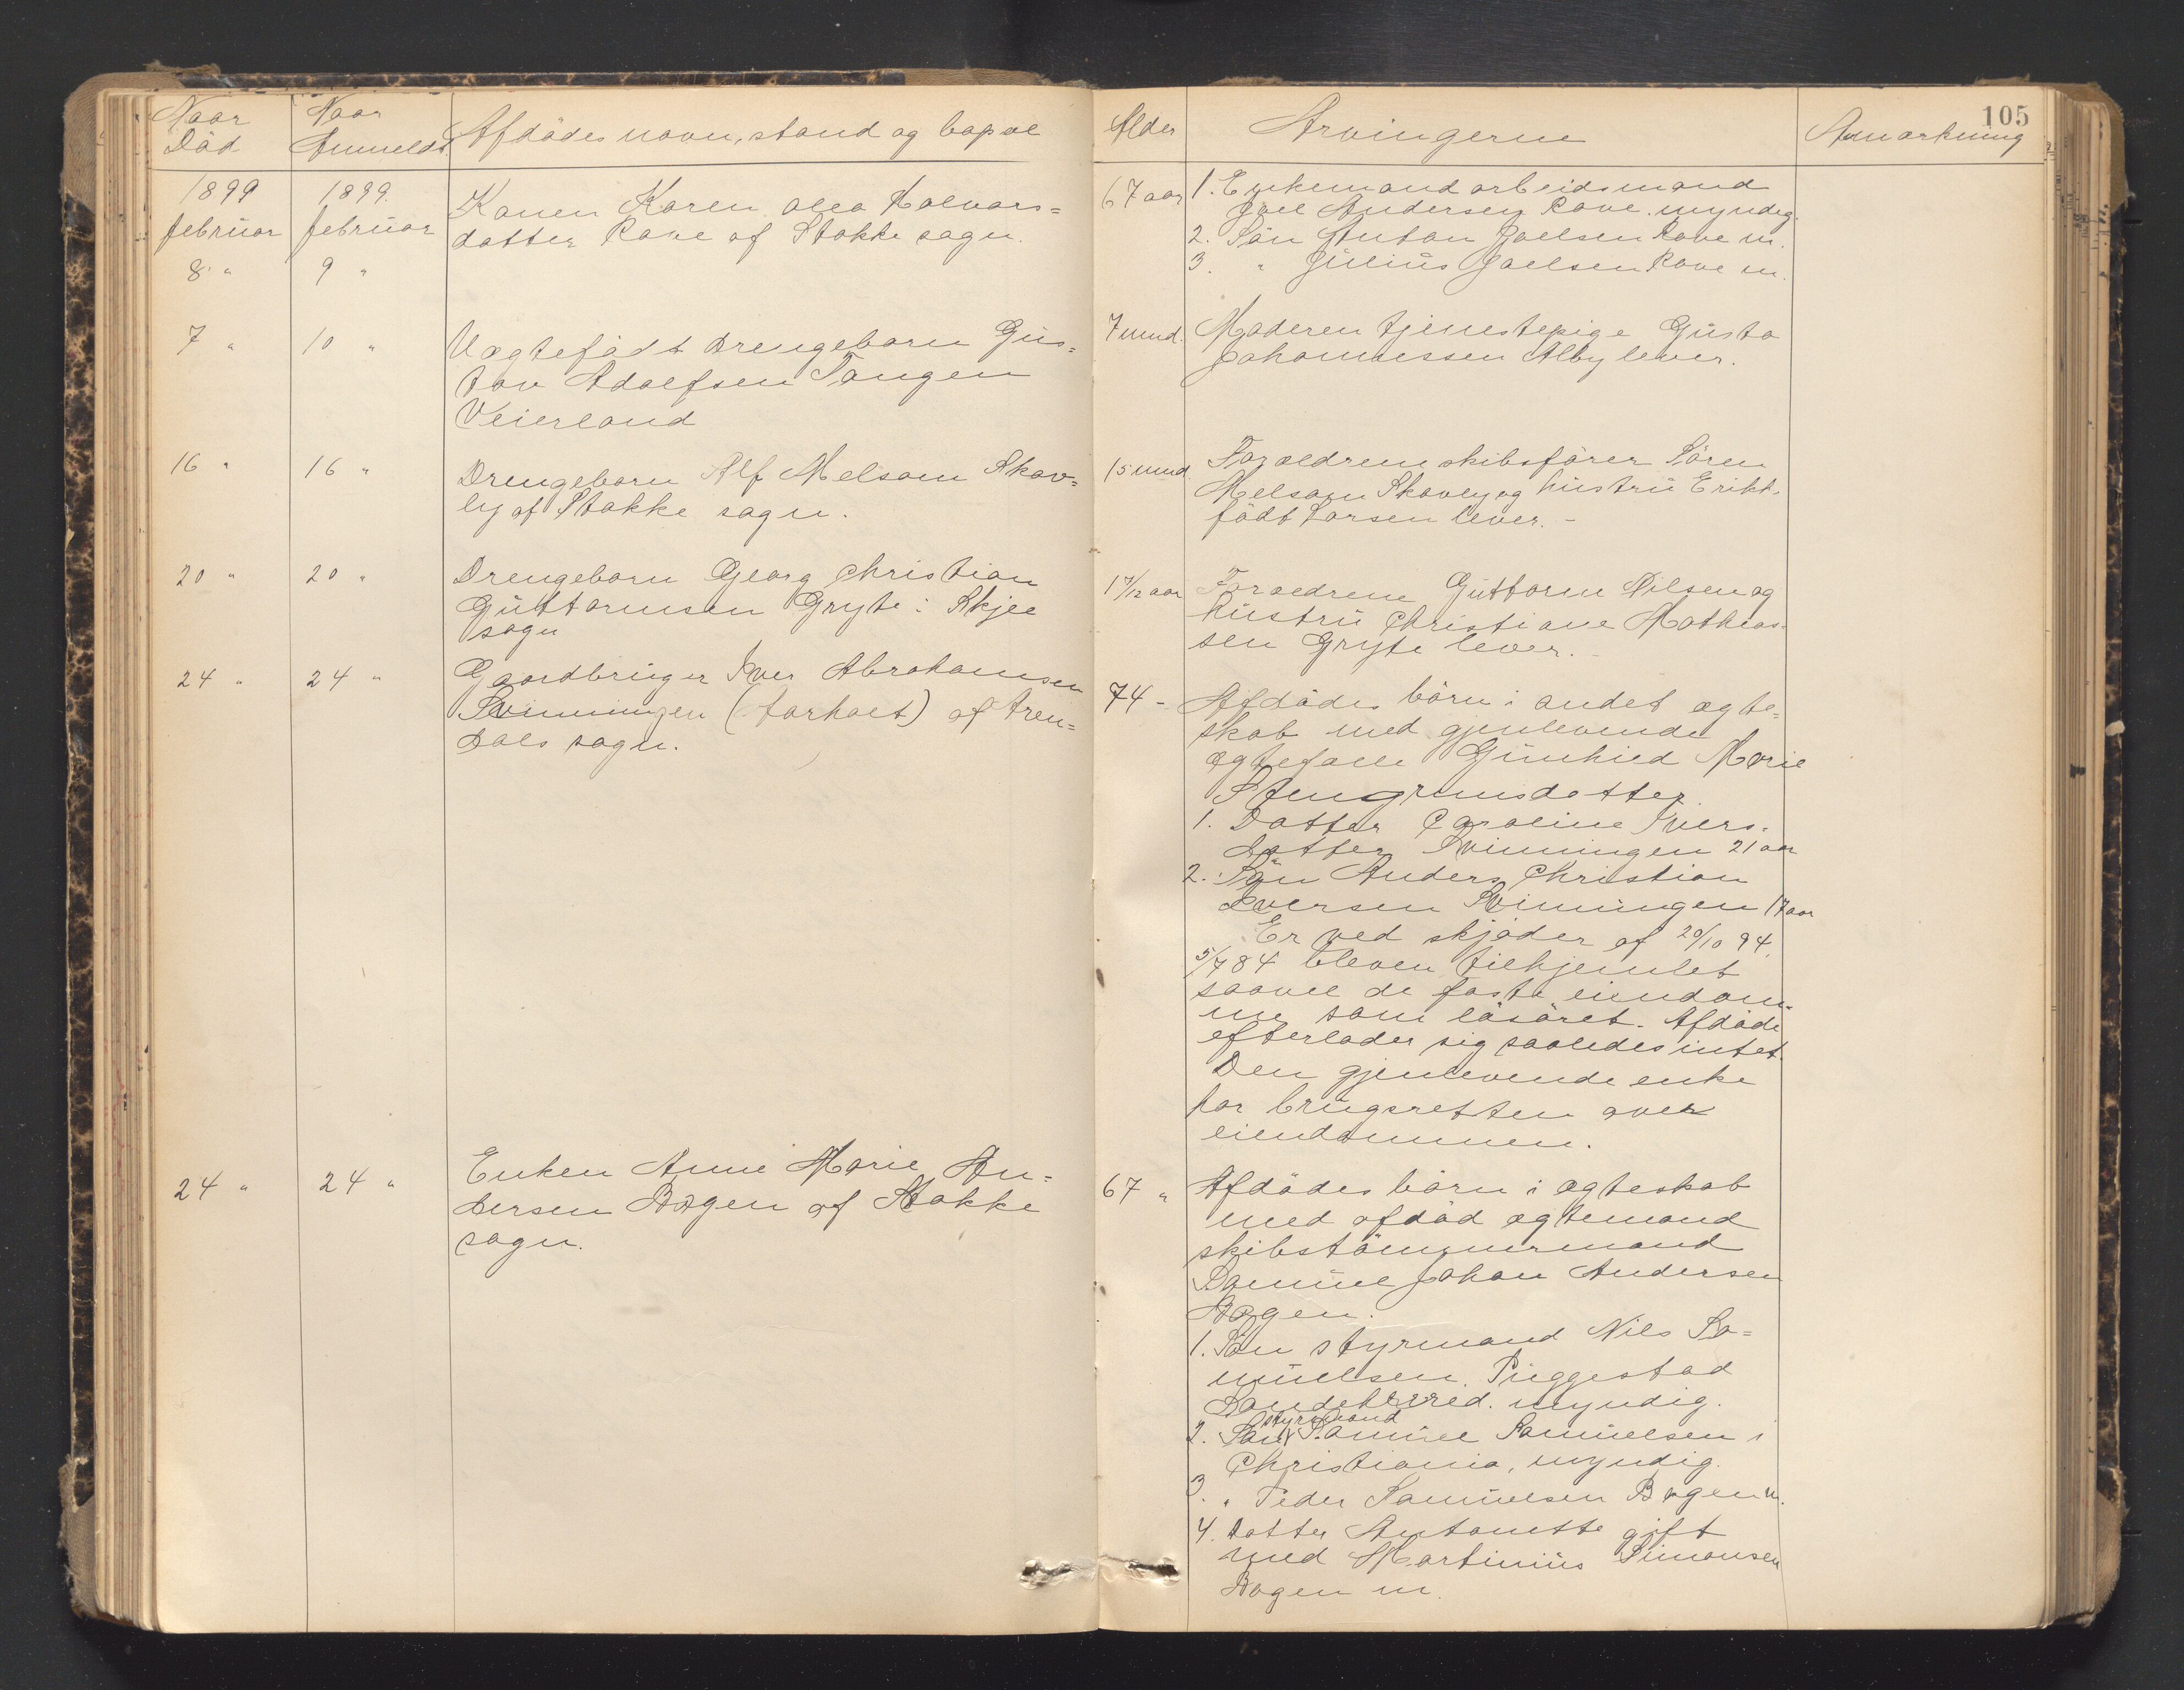 105
Naar Död
Naar Anmeldt.
Afdödes navn, stand og bopæl
Alder
Arvingerne
Anmærkning
1899 februar 8 "
1899. februar 9 "
Konen Karen Olea Halvors=
datter Rove af Stokke sogn.
67 aar
1. Enkemand arbeidsmand
Joel Andersen Rove. myndig.
2. Sön Anton Joelsen Rove m.
3. " Julius Joelsen Rove m.
7 "
10 "
Uægtefödt drengebarn Gus=
tav Adolfsen Tangen
Veierland
7 mnd.
Moderen tjenestepige Gusta
Johannessen Alby lever.
16 "
16 "
Drengebarn Alf Melsom Skov=
ly af Stokke sogn.
15 mnd
Forældrene skibsförer Sören
Melsom Skovly og hustru Erikk.
födt Larsen lever. -
20 "
20 "
Drengebarn Georg Christian
Guttormsen Gryte i Skjee
sogn
1 7/12 aar
Forældrene Guttorm Nilsen og
hustru Christiane Mathias-
sen Gryte lever. -
24 "
24 "
Gaardbruger Iver Abrahamsen
Svinningen (forhoet) af Aren=
dals sogn.
74 -
Afdödes börn i andet ægte=
skab med gjenlevende
ægtefælle Gunhild Marie
Stengrimsdatter.
1. Datter Caroline Ivers=
datter Svinningen 21 aar
2. Sön Anders Christian
Iversen Svinningen 17 aar
Er ved skjöder af 20/10 94,
5/7 84 bleven tilhjemlet
saavel de faste eiendom=
me som lösöret. Afdöde
efterlader sig saaledes intet.
Den gjenlevende enke
har brugsretten over
eiendommen.
24 "
24 "
Enken Anne Marie An=
dersen Bogen af Stokke
sogn.
67 "
Afdödes börn i ægteskab
med afdöd ægtemand
skibstömmermand
Samuel Johan Andersen
Bogen.
1. Sön styrmand Nils Sa=
muelsen. Piggestad
Sandeherred. myndig.
styrmand
2. Sön Samuel Samuelsen i
Christiania, myndig.
3. " Peder Samuelsen Bogen m.
4. Datter Antonette gift
med Martinius Simonsen
Bogen m.